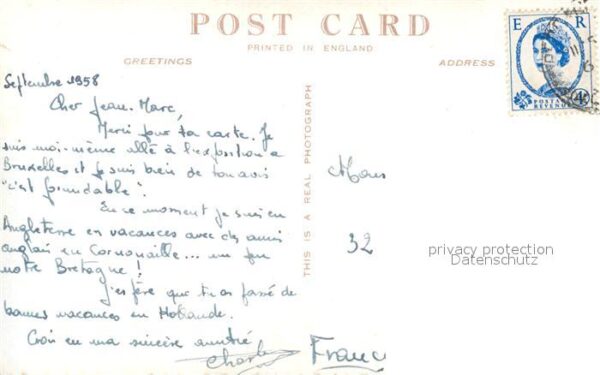 POST CARD
PRINTED IN ENGLAND
GREETINGS
ADDRESS
E R
POSTAGE
REVENUE
4D
Septembre 1958
Cher Jean-Marc,
Merci pour ta carte. Je
suis moi-même allé à l'exposition à
Bruxelles et je suis bien de ton avis
"c'est formidable".
En ce moment je suis en
Angleterre en vacances avec des amis
anglais en Cornouaille... un peu
notre Bretagne!
J'espère que tu as passé de
bonnes vacances en Hollande.
Crois en ma sincère amitié
THIS IS A REAL PHOTOGRAPH
32
privacy protection
Datenschutz